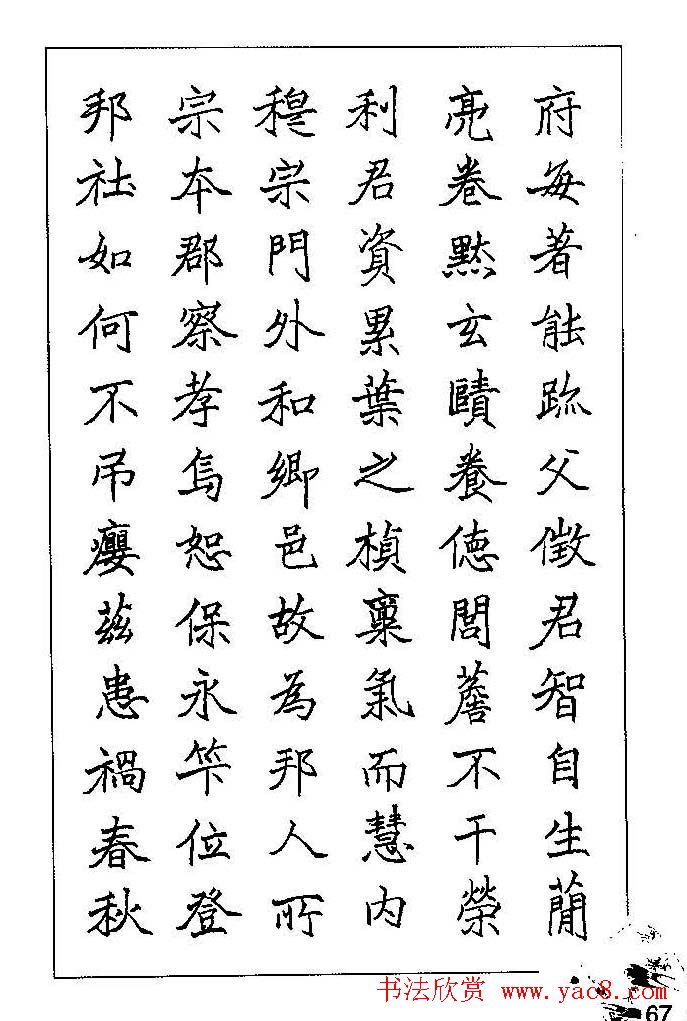 府每著能䟽父徵君智自生蕳
亮卷默玄賾養德閭蓎不干榮
利君資累葉之楨稟氣而慧內
穆宗門外和鄉邑故為邦人所
宗本郡察孝焉恕保永笇位登
邦社如何不弔癭茲患禍春秋
书法欣赏 www.yac8.com
67